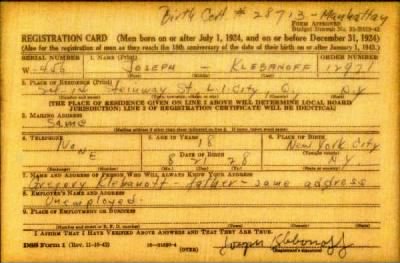 Birth Cert # 28713 - Manhattan
Form Approved
REGISTRATION CARD (Men born on or after July 1, 1924, and on or before December 31, 1924)
(Also for the registration of men as they reach the 18th anniversary of the date of their birth on or after January 1, 1925.)
SERIAL NUMBER 1. NAME (Print) ORDER NUMBER
W-456 JOSEPH - KLEBANOFF 12971
2. PLACE OF RESIDENCE (Print)
Steinway St. L.I. City Q. N.Y.
[THE PLACE OF RESIDENCE GIVEN ON LINE 2 ABOVE WILL DETERMINE LOCAL BOARD
JURISDICTION; LINE 2 OF REGISTRATION CERTIFICATE WILL BE IDENTICAL]
3. MAILING ADDRESS
Same
[Mailing address if other than place indicated on line 2. If same, insert word same]
4. TELEPHONE 5. AGE IN YEARS 6. PLACE OF BIRTH
NONE 18 New York City
DATE OF BIRTH
8 21 28 N.Y.
7. NAME AND ADDRESS OF PERSON WHO WILL ALWAYS KNOW YOUR ADDRESS
Gregory Klebanoff - father - same address
8. EMPLOYER'S NAME AND ADDRESS
Unemployed
9. PLACE OF EMPLOYMENT OR BUSINESS
I AFFIRM THAT I HAVE VERIFIED ABOVE ANSWERS AND THAT THEY ARE TRUE.
DSS Form 1 (OVER) Joseph Klebanoff